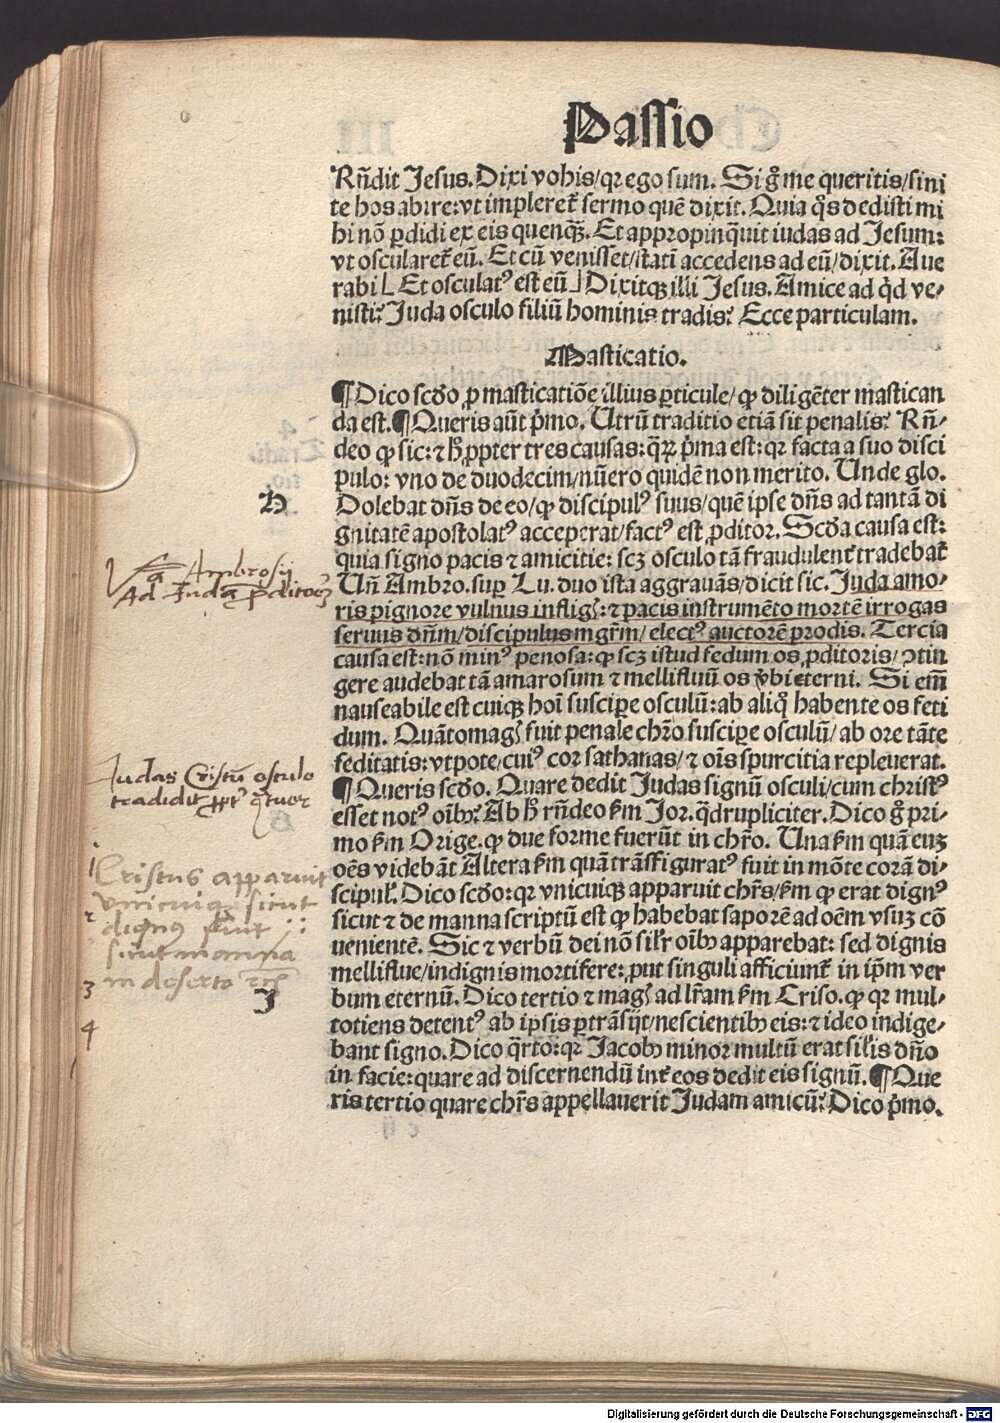 Passio
Rñdit Jesus. Dixi vobis/qꝛ ego sum. Si gͦ me queritis/sini
te hos abire: vt impleret᷑ sermo quē dixit. Quia qͦs dedisti mi
hi nō ꝑdidi ex eis quenqꝫ. Et appropinquit iudas ad Jesum:
vt oscularet᷑ eū. Et cū venisset/statī accedens ad eū/dixit. Aue
rabi Et osculatꝰ est eū Dixitqꝫ illi Jesus. Amice ad qͥd ve⸗
nisti? Juda osculo filiū hominis tradis? Ecce particulam.
Masticatio.
¶ Dico scd̄o ꝓ masticatiōe illius ꝑticule/ ꝙ diligēter mastican
da est. ¶ Queris aūt pͥmo. Utrū traditio etiā sit penalis? Rñ⸗
deo ꝙ sic: ⁊ h̄ ꝓpter tres causas: qͣꝝ pͥma est: qꝛ facta a suo disci
pulo: vno de duodecim/nūero quidē non merito. Unde glo.
D
Dolebat dn̄s de eo/ꝙ discipulꝰ suus/quē ipse dn̄s ad tantā di
gnitatē apostolatꝰ acceperat/factꝰ est ꝓditor. Scd̄a causa est:
quia signo pacis ⁊ amicitie: scꝫ osculo tā fraudulent᷑ tradebat᷑
Ambrosij
Ad Judā ꝓditorē
Uñ Ambro. suꝑ Lu. duo ista aggrauās/dicit sic. Juda amo⸗
ris pignore vulnus infligꝭ: ⁊ pacis instrumēto mortē irrogas
seruus dn̄m/discipulus mgr̄m/ electꝰ auctorē prodis. Tercia
causa est: nō minꝰ penosa: ꝙ scꝫ istud fedum os ꝓditoris/ ↄtin
gere audebat tā amarosum ⁊ mellifluū os v̓bi eterni. Si em̄
nauseabile est cuiqꝫ hoī suscipe osculū: ab aliqͦ habente os feti
dum. Quātomagꝭ fuit penale chr̄o suscipe osculū/ ab ore tāte
Judas Cristū osculo
tradidit ꝓpt᷑ qͣtuor
feditatis: vtpote/cuiꝰ cor sathanas/ ⁊ oīs spurcitia repleuerat.
¶ Queris scd̄o. Quare dedit Judas signū osculi/cum christꝰ
esset notꝰ oībꝫ? Ab h̄ rñdeo ẜm Jor. qͣdrupliciter. Dico gͦ pri⸗
mo ẜm Orige. ꝙ due forme fuerūt in chr̄o. Una ẜm quā euꝫ
1
Cristus apparuit
vnicuiqꝫ sicut
2
dignꝰ fuit
sicut manna
3
in deserto
4
oēs videbāt Altera ẜm quā trāsfiguratꝰ fuit in mōte corā di⸗
scipulꝭ. Dico scd̄o: qꝛ vnicuiqꝫ apparuit chr̄s/ẜm ꝙ erat dignꝰ
sicut ⁊ de manna scriptū est ꝙ habebat saporē ad oēm vsuꝫ cō
uenientē. Sic ⁊ verbū dei nō silr̄ oībꝫ apparebat: sed dignis
melliflue/indignis mortifere: ꝓut singuli afficiunt᷑ in ip̄m ver
J
bum eternū. Dico tertio ⁊ magꝭ ad lr̄am ẜm Criso. ꝙ qꝛ mul⸗
totiens detentꝰ ab ipsis ꝑtrāsijt/nescientibꝫ eis: ⁊ ideo indige⸗
bant signo. Dico qͣrto: qꝛ Jacobꝰ minor multū erat sil̄is dn̄o
in facie: quare ad discernendū int᷑ eos dedit eis signū. ¶ Que
ris tertio quare chr̄s appellauerit Judam amicū? Dico pͥmo.
Digitalisierung gefördert durch die Deutsche Forschungsgemeinschaft - DFG